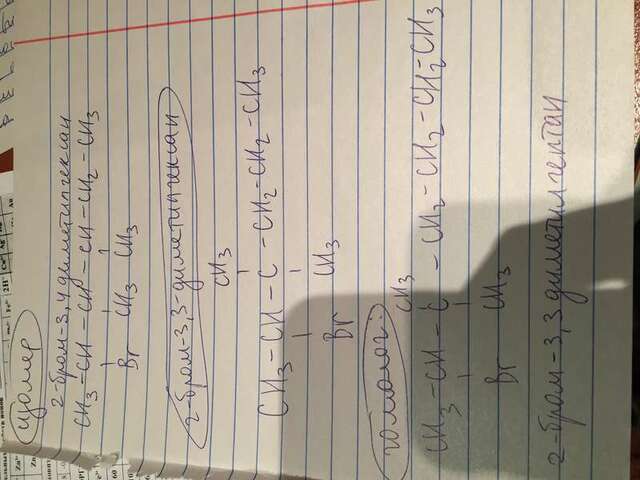 изомер
2-бром-3,4 диметилгексан
CH3-CH-CH-CH-CH2-CH3
Br CH3 CH3
2-бром-3,3-диметилгексан
CH3
CH3-CH-C-CH2-CH2-CH3
Br CH3
гомолог:
CH3
CH3-CH-C-CH2-CH2-CH2-CH3
Br CH3
2-бром-3,3 диметилгептан